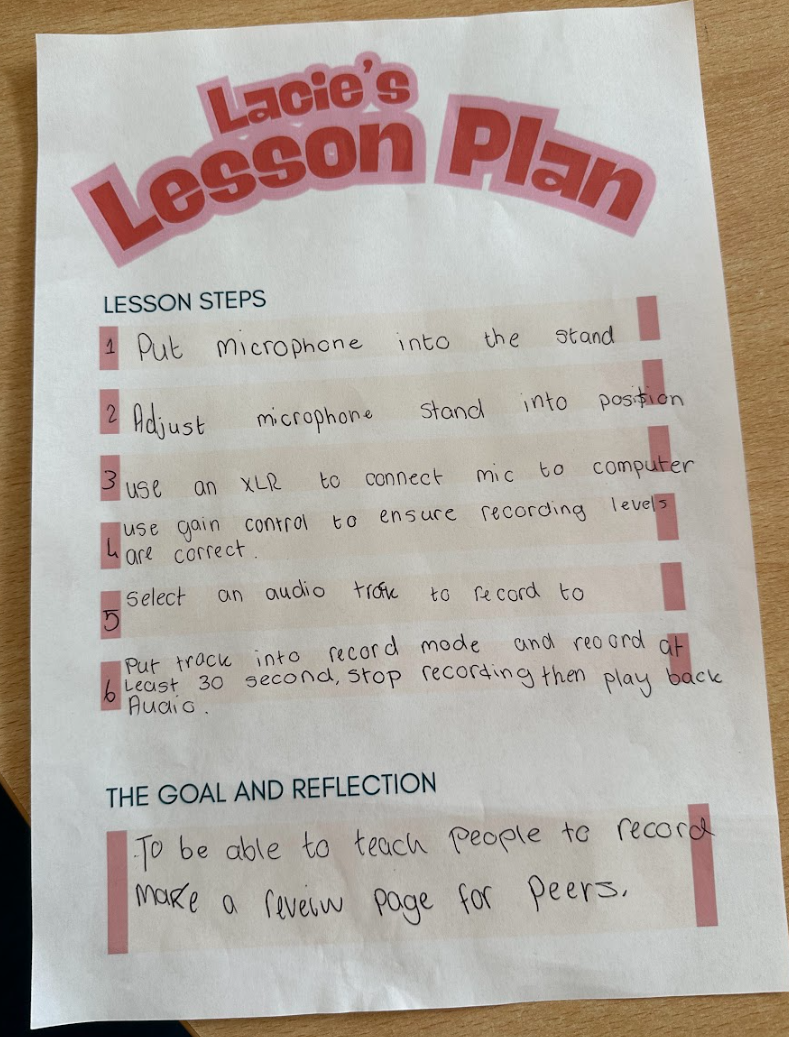 Lacie's
Lesson Plan
LESSON STEPS
1 Put microphone into the stand
2 Adjust microphone stand into position
3 use an XLR to connect mic to computer
4 use gain control to ensure recording levels
are correct.
5 Select an audio track to record to
6 Put track into record mode and record at
Least 30 second, stop recording then play back
Audio.
THE GOAL AND REFLECTION
To be able to teach people to record
make a reveiw page for peers.